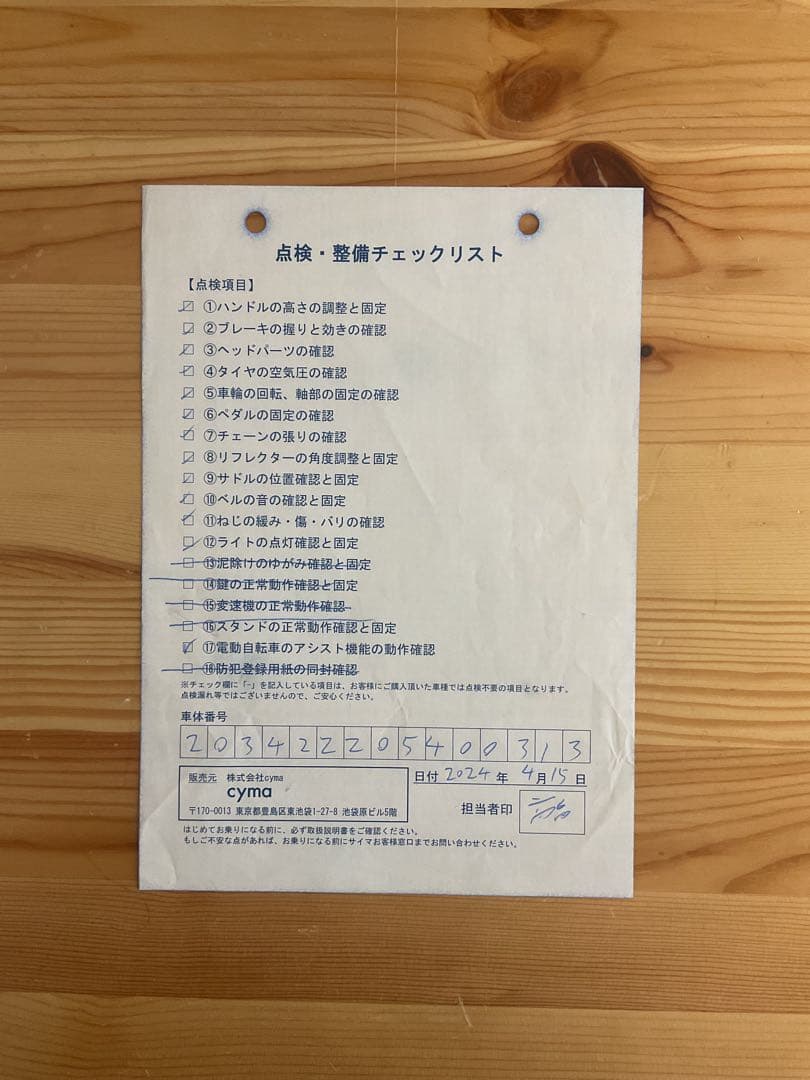 点検・整備チェックリスト
【点検項目】
☑ ①ハンドルの高さの調整と固定
☑ ②ブレーキの握りと効きの確認
☑ ③ヘッドパーツの確認
☑ ④タイヤの空気圧の確認
☑ ⑤車輪の回転、軸部の固定の確認
☑ ⑥ペダルの固定の確認
☑ ⑦チェーンの張りの確認
☑ ⑧リフレクターの角度調整と固定
☑ ⑨サドルの位置確認と固定
☑ ⑩ベルの音の確認と固定
☑ ⑪ねじの緩み・傷・バリの確認
☑ ⑫ライトの点灯確認と固定
□ ⑬泥除けのゆがみ確認と固定
□ ⑭鍵の正常動作確認と固定
□ ⑮変速機の正常動作確認
□ ⑯スタンドの正常動作確認と固定
☑ ⑰電動自転車のアシスト機能の動作確認
□ ⑱防犯登録用紙の同封確認
※チェック欄に「-」を記入している項目は、お客様にご購入頂いた車種では点検不要の項目となります。
点検漏れ等ではございませんので、ご安心ください。
車体番号
203422205400313
販売元 株式会社cyma
cyma
〒170-0013 東京都豊島区東池袋1-27-8 池袋原ビル5階
日付 2024 年 4月 15 日
担当者印
はじめてお乗りになる前に、必ず取扱説明書をご確認ください。
もしご不安な点があれば、お乗りになる前にサイマお客様窓口までお問い合わせください。